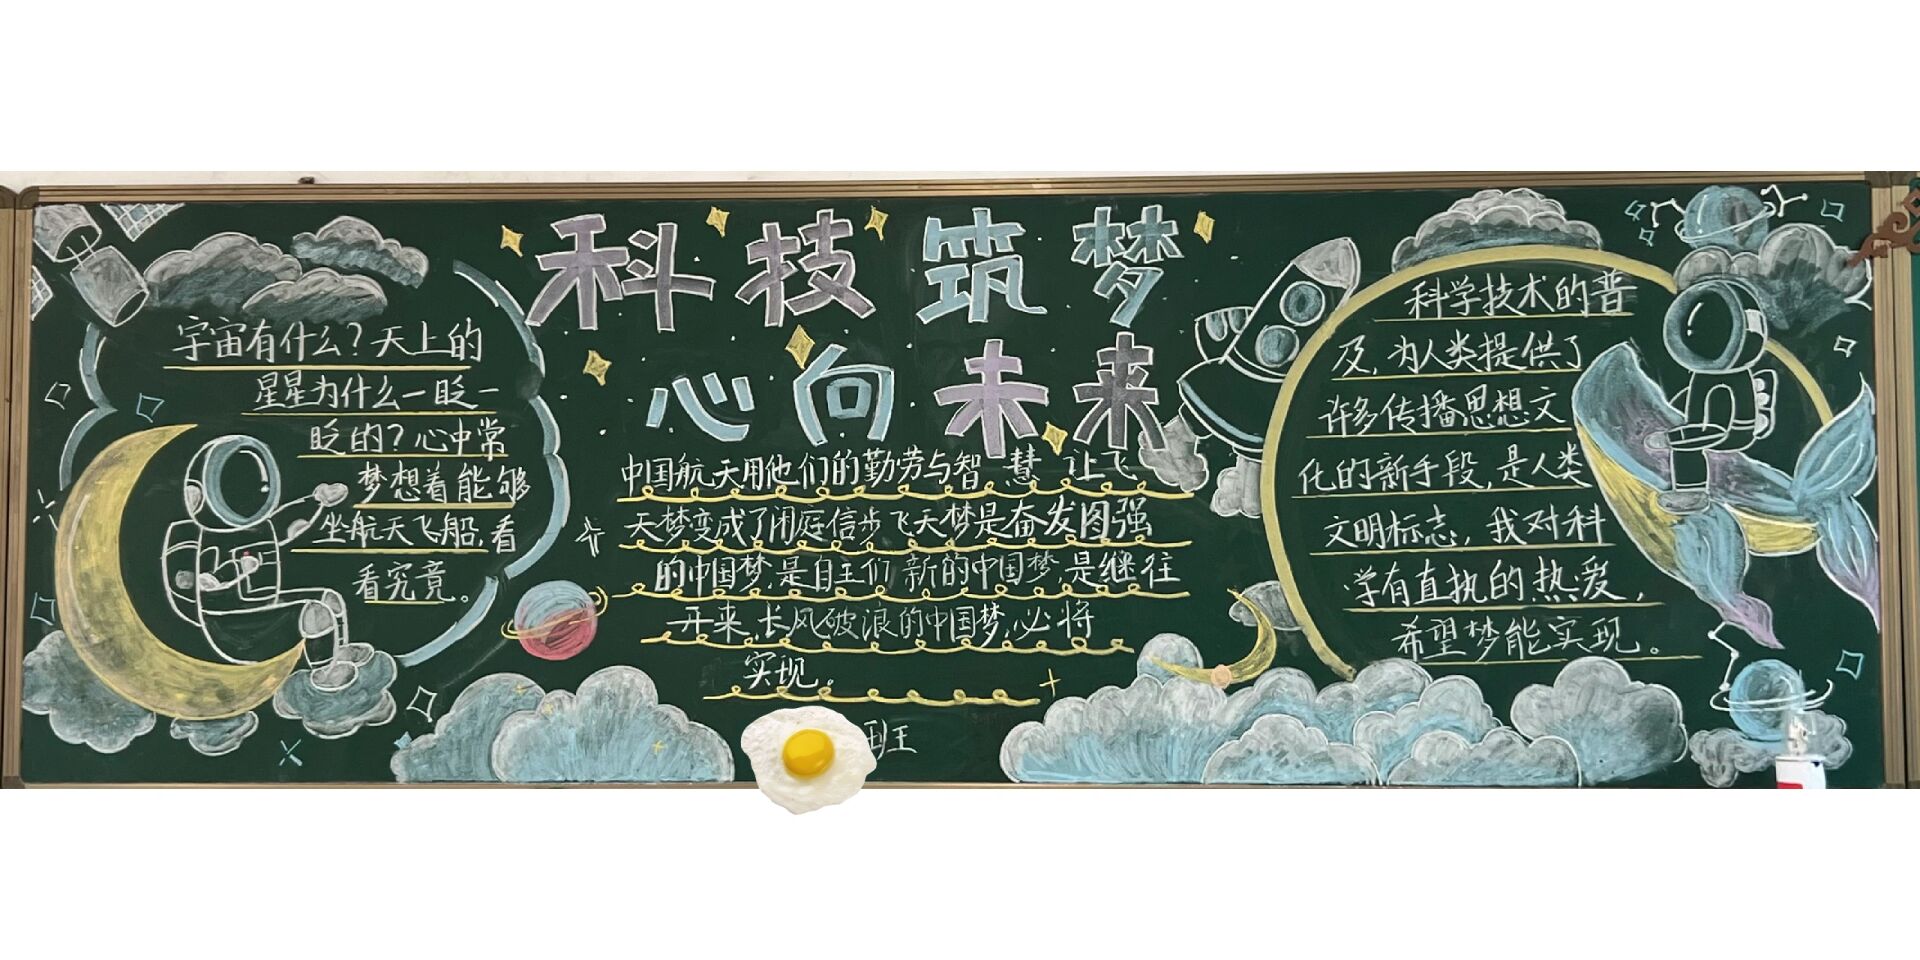 科技筑梦
心向未来
宇宙有什么？天上的
星星为什么一眨一
眨的？心中常
梦想着能够
坐航天飞船，看
看究竟。
中国航天用他们的勤劳与智慧，让飞
天梦变成了闲庭信步飞天梦是奋发图强
的中国梦，是自主们新的中国梦，是继往
开来，长风破浪的中国梦，必将
实现。
班
科学技术的普
及，为人类提供了
许多传播思想文
化的新手段，是人类
文明标志，我对科
学有直执的热爱，
希望梦能实现。